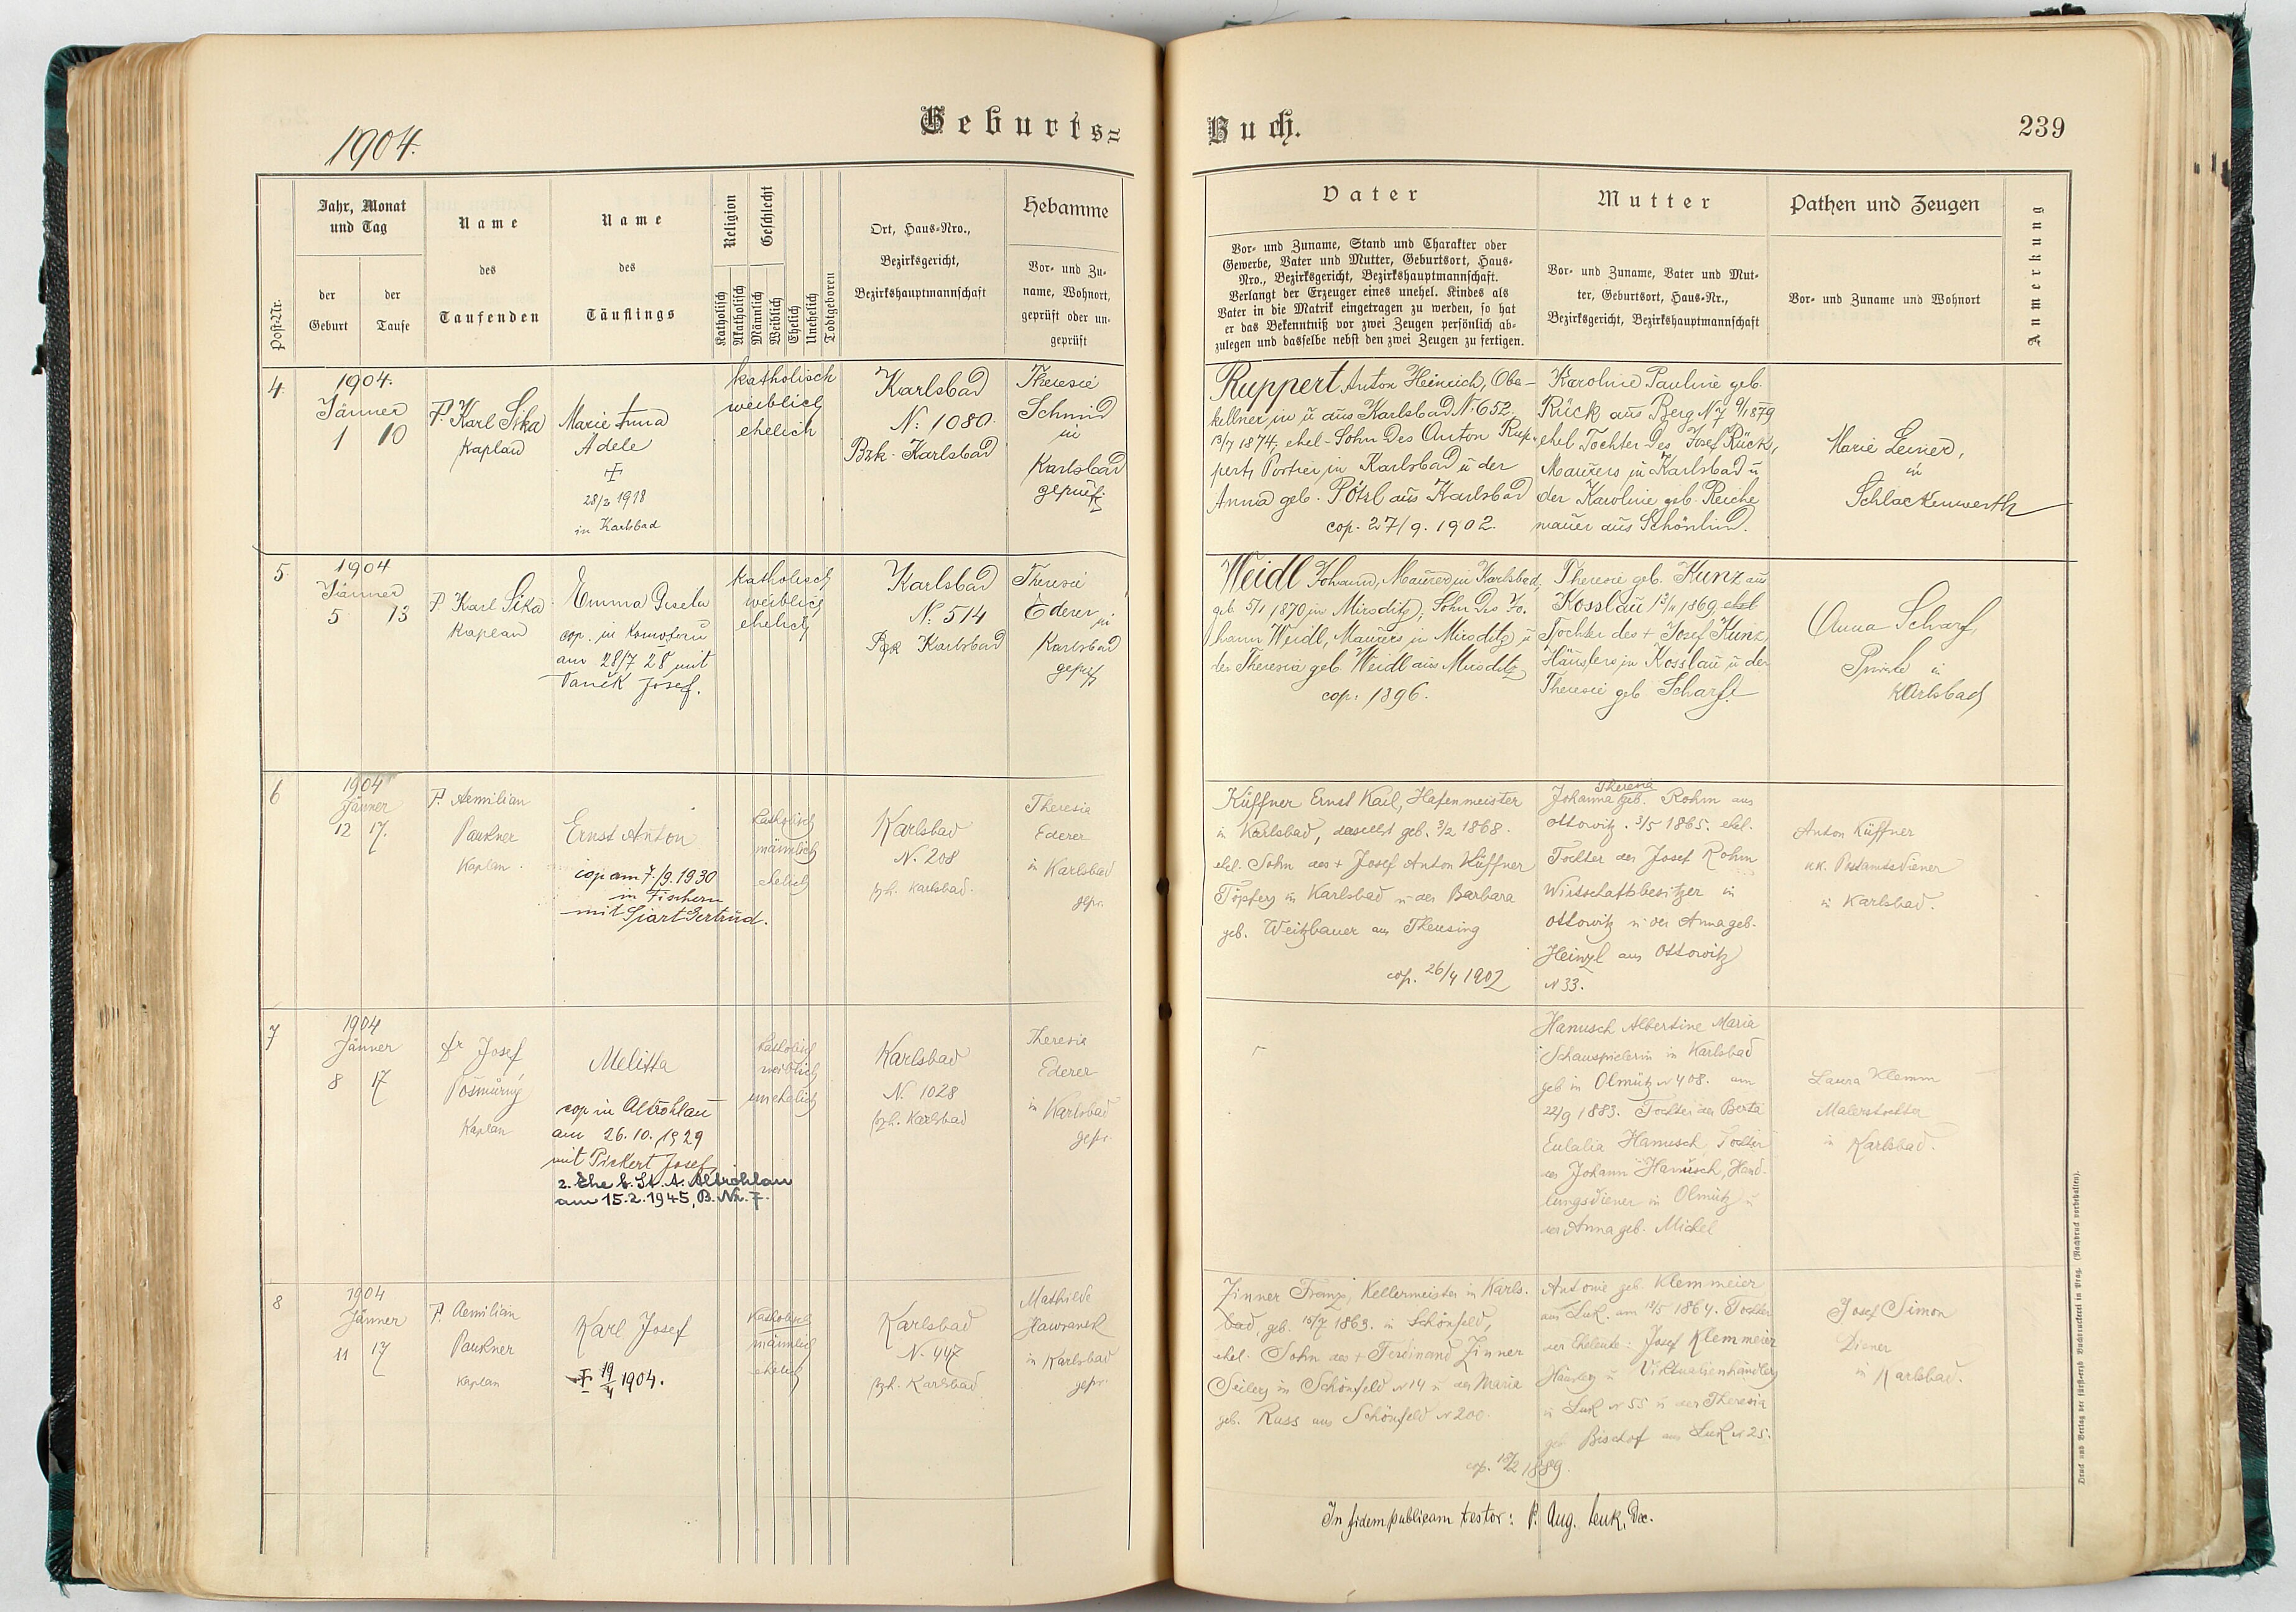 1904.
Geburts=
Buch.
239
Post-Nr.
Jahr, Monat
und Tag
der
Geburt
der
Taufe
Name
des
Taufenden
Name
des
Täuflings
Religion
Geschlecht
Katholisch
Akatholisch
Männlich
Weiblich
Ehelich
Unehelich
Todtgeboren
Ort, Haus-Nro.,
Bezirksgericht,
Bezirkshauptmannschaft
Hebamme
Vor- und Zu-
name, Wohnort,
geprüft oder un-
geprüft
Vater
Vor- und Zuname, Stand und Charakter oder
Gewerbe, Vater und Mutter, Geburtsort, Haus-
Nro., Bezirksgericht, Bezirkshauptmannschaft.
Verlangt der Erzeuger eines unehel. Kindes als
Vater in die Matrik eingetragen zu werden, so hat
er das Bekenntniß vor zwei Zeugen persönlich ab-
zulegen und dasselbe nebst den zwei Zeugen zu fertigen.
Mutter
Vor- und Zuname, Vater und Mut-
ter, Geburtsort, Haus-Nr.,
Bezirksgericht, Bezirkshauptmannschaft
Pathen und Zeugen
Vor- und Zuname und Wohnort
Anmerkung
4.
1904.
Jänner
1 10
P. Karl Sika
Kaplan
Marie Anna
Adele
+
28/3 1918
in Karlsbad
katholisch
weiblich
ehelich
Karlsbad
N: 1080.
Bzk. Karlsbad
Theresie
Schmid
in
Karlsbad
geprüft
Ruppert Anton Heinrich, Obe-
kellner in u aus Karlsbad N. 652.
13/7 1874, ehel. Sohn des Anton Rup-
pert, Portier in Karlsbad u der
Anna geb. Pötzl aus Karlsbad
cop. 27/9. 1902.
Karoline Pauline geb.
Rück aus Berg N 7 9/1 1879
ehel. Tochter des Josef Rück,
Maurers in Karlsbad u
der Karoline geb. Reiche
mauer aus Schönlind.
Marie Leiner,
in
Schlackenwerth
5
1904
Jänner
5 13
P Karl Sika
Kaplan
Emma Gisela
cop. in Komotau
am 28/7 28 mit
Vanek Josef.
katholisch
weiblich
ehelich
Karlsbad
N: 514
Karlsbad
Theresie
Ederer in
Karlsbad
gepr.
Weidl Johann, Maurer in Karlsbad,
geb. 5/1 1870 in Mirsditz; Sohn des Jo-
hann Weidl, Maurers in Mirsditz u
der Theresia geb. Weidl aus Mirsditz
cop. 1896.
Theresie geb. Kunz aus
Kosslau 13/11 1869 ehel
Tochter des + Josef Kunz,
Häuslers in Kosslau u der
Theresie geb Scharf.
Anna Scharf,
Private in
Karlsbad
6
1904
Jänner
12 17.
P. Aemilian
Paukner
Kaplan.
Ernst Anton
cop am 7./9. 1930
in Fischern
mit Siart Gertrud.
katholisch
männlich
ehelich
Karlsbad
N. 208
bzh. Karlsbad.
Theresia
Ederer
in Karlsbad
gepr.
Küffner Ernst Karl, Hafenmeister
in Karlsbad, daselbst geb. 3/2 1868.
ehel. Sohn des + Josef Anton Küffner
Töpfers in Karlsbad u der Barbara
geb. Weitzbauer aus Theusing
cop. 26/4 1902
Theresia
Johanna geb. Rohm aus
Ottowitz. 3/5 1865. ehel.
Tochter des Josef Rohm
Wirtschaftsbesitzer in
Ottowitz u der Anna geb.
Heinzl aus Ottowitz
N 33.
Anton Küffner
k.k. Postamtsdiener
in Karlsbad.
7
1904
Jänner
8 17
fr Josef
Pošmůrný
Kaplan
Melitta
cop in Altrohlau
am 26. 10. 1929
mit Pickert Josef
2. Ehe b. St. A. Altrohlau
am 15.2.1945, B. Nr. 7.
katholisch
weiblich
unehelich
Karlsbad
N. 1028
bzh. Karlsbad
Theresia
Ederer
in Karlsbad
gepr.
Hanusch Albertine Maria
Schauspielerin in Karlsbad
geb in Olmütz N 408. am
22/9 1883. Tochter der Berta
Eulalia Hanusch, Tochter
des Johann Hanusch, Hand-
lungsdiener in Olmütz u
der Anna geb. Michel
Laura Klemm
Malerstochter
in Karlsbad.
8
1904
Jänner
11 17
P. Aemilian
Paukner
Kaplan
Karl Josef
+ 19/4 1904.
katholisch
männlich
ehelich
Karlsbad
N. 447
bzh. Karlsbad
Mathilde
Hawranek
in Karlsbad
gepr.
Zinner Franz, Kellermeister in Karls-
bad, geb. 15/7 1863. in Schönfeld,
ehel. Sohn des + Ferdinand Zinner
Seilers in Schönfeld N 14 u der Maria
geb. Russ aus Schönfeld N 200.
cop. 12/2 1889.
Antonie geb. Klemmeier
aus Luk. am 12/5 1864. Tochter
der Eheleute: Josef Klemmeier
Häuslers u Viktualienhändlers
in Luk N 55 u der Theresia
geb. Bischof aus Luk N 25.
Josef Simon
Diener
in Karlsbad.
In fidem publicam testor: P. Aug. Lenk, Dec.
Druck und Verlag der fürst-erzb. Buchdruckerei in Prag. (Nachdruck vorbehalten).